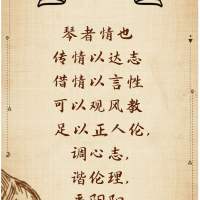 琴者情也
传情以达志
借情以言性
可以观风教
足以正人伦,
调心志,
谐伦理,